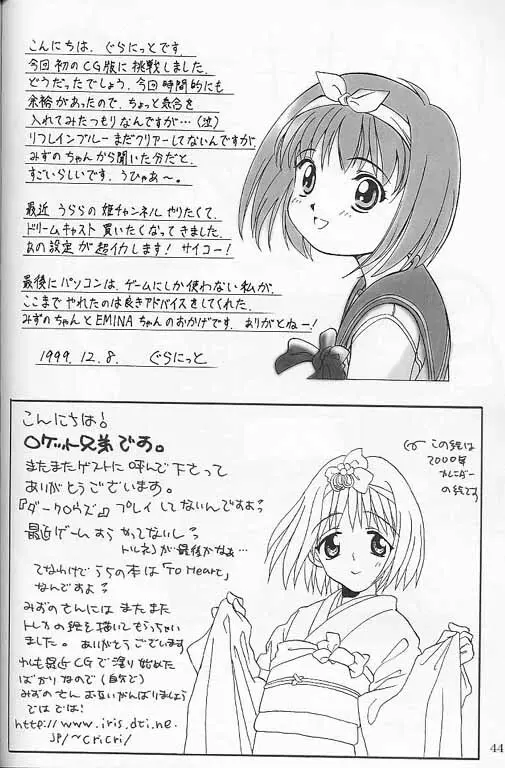 こんにちは、ぐらにっとです
今回初のCG版に挑戦しました。
どうだったでしょう、今回時間的にも
余裕があったので、ちょっと気合を
入れてみたつもりなんですが…(泣)
リフレインブルーまだクリアーしてないんですが
みずのちゃんから聞いた分だと、
すごいらしいです、うひゃあ〜。
最近 うららの姫チャンネル やりたくて、
ドリームキャスト 買いたくなってきました。
あの設定が超イカします! サイコー!
最後にパソコンは、ゲームにしか使わない私が、
ここまでやれたのは良きアドバイスをしてくれた、
みずのちゃんとEMINAちゃんのおかげです、ありがとねー!
1999.12.8. ぐらにっと
こんにちは!
ロケット兄弟です。
またまたゲストに呼んで下さって
ありがとうございます。
プレイしてないんですよ?
最近ゲームすらやってないし?
が最後かなぁ…
てなわけでうちの本は「To Heart」
なんですよ?
みずのさんには またまた
トレカの絵を描いてもらっちゃい
ました。ありがとうございます
も最近CGで塗り始めた
ばかりなので(自分で)
みずのさんお互いがんばりましょう
ではでは!
http://www.iris.dti.ne.
jp/~cricri/
この絵は
2000年
カレンダー
の絵です
44